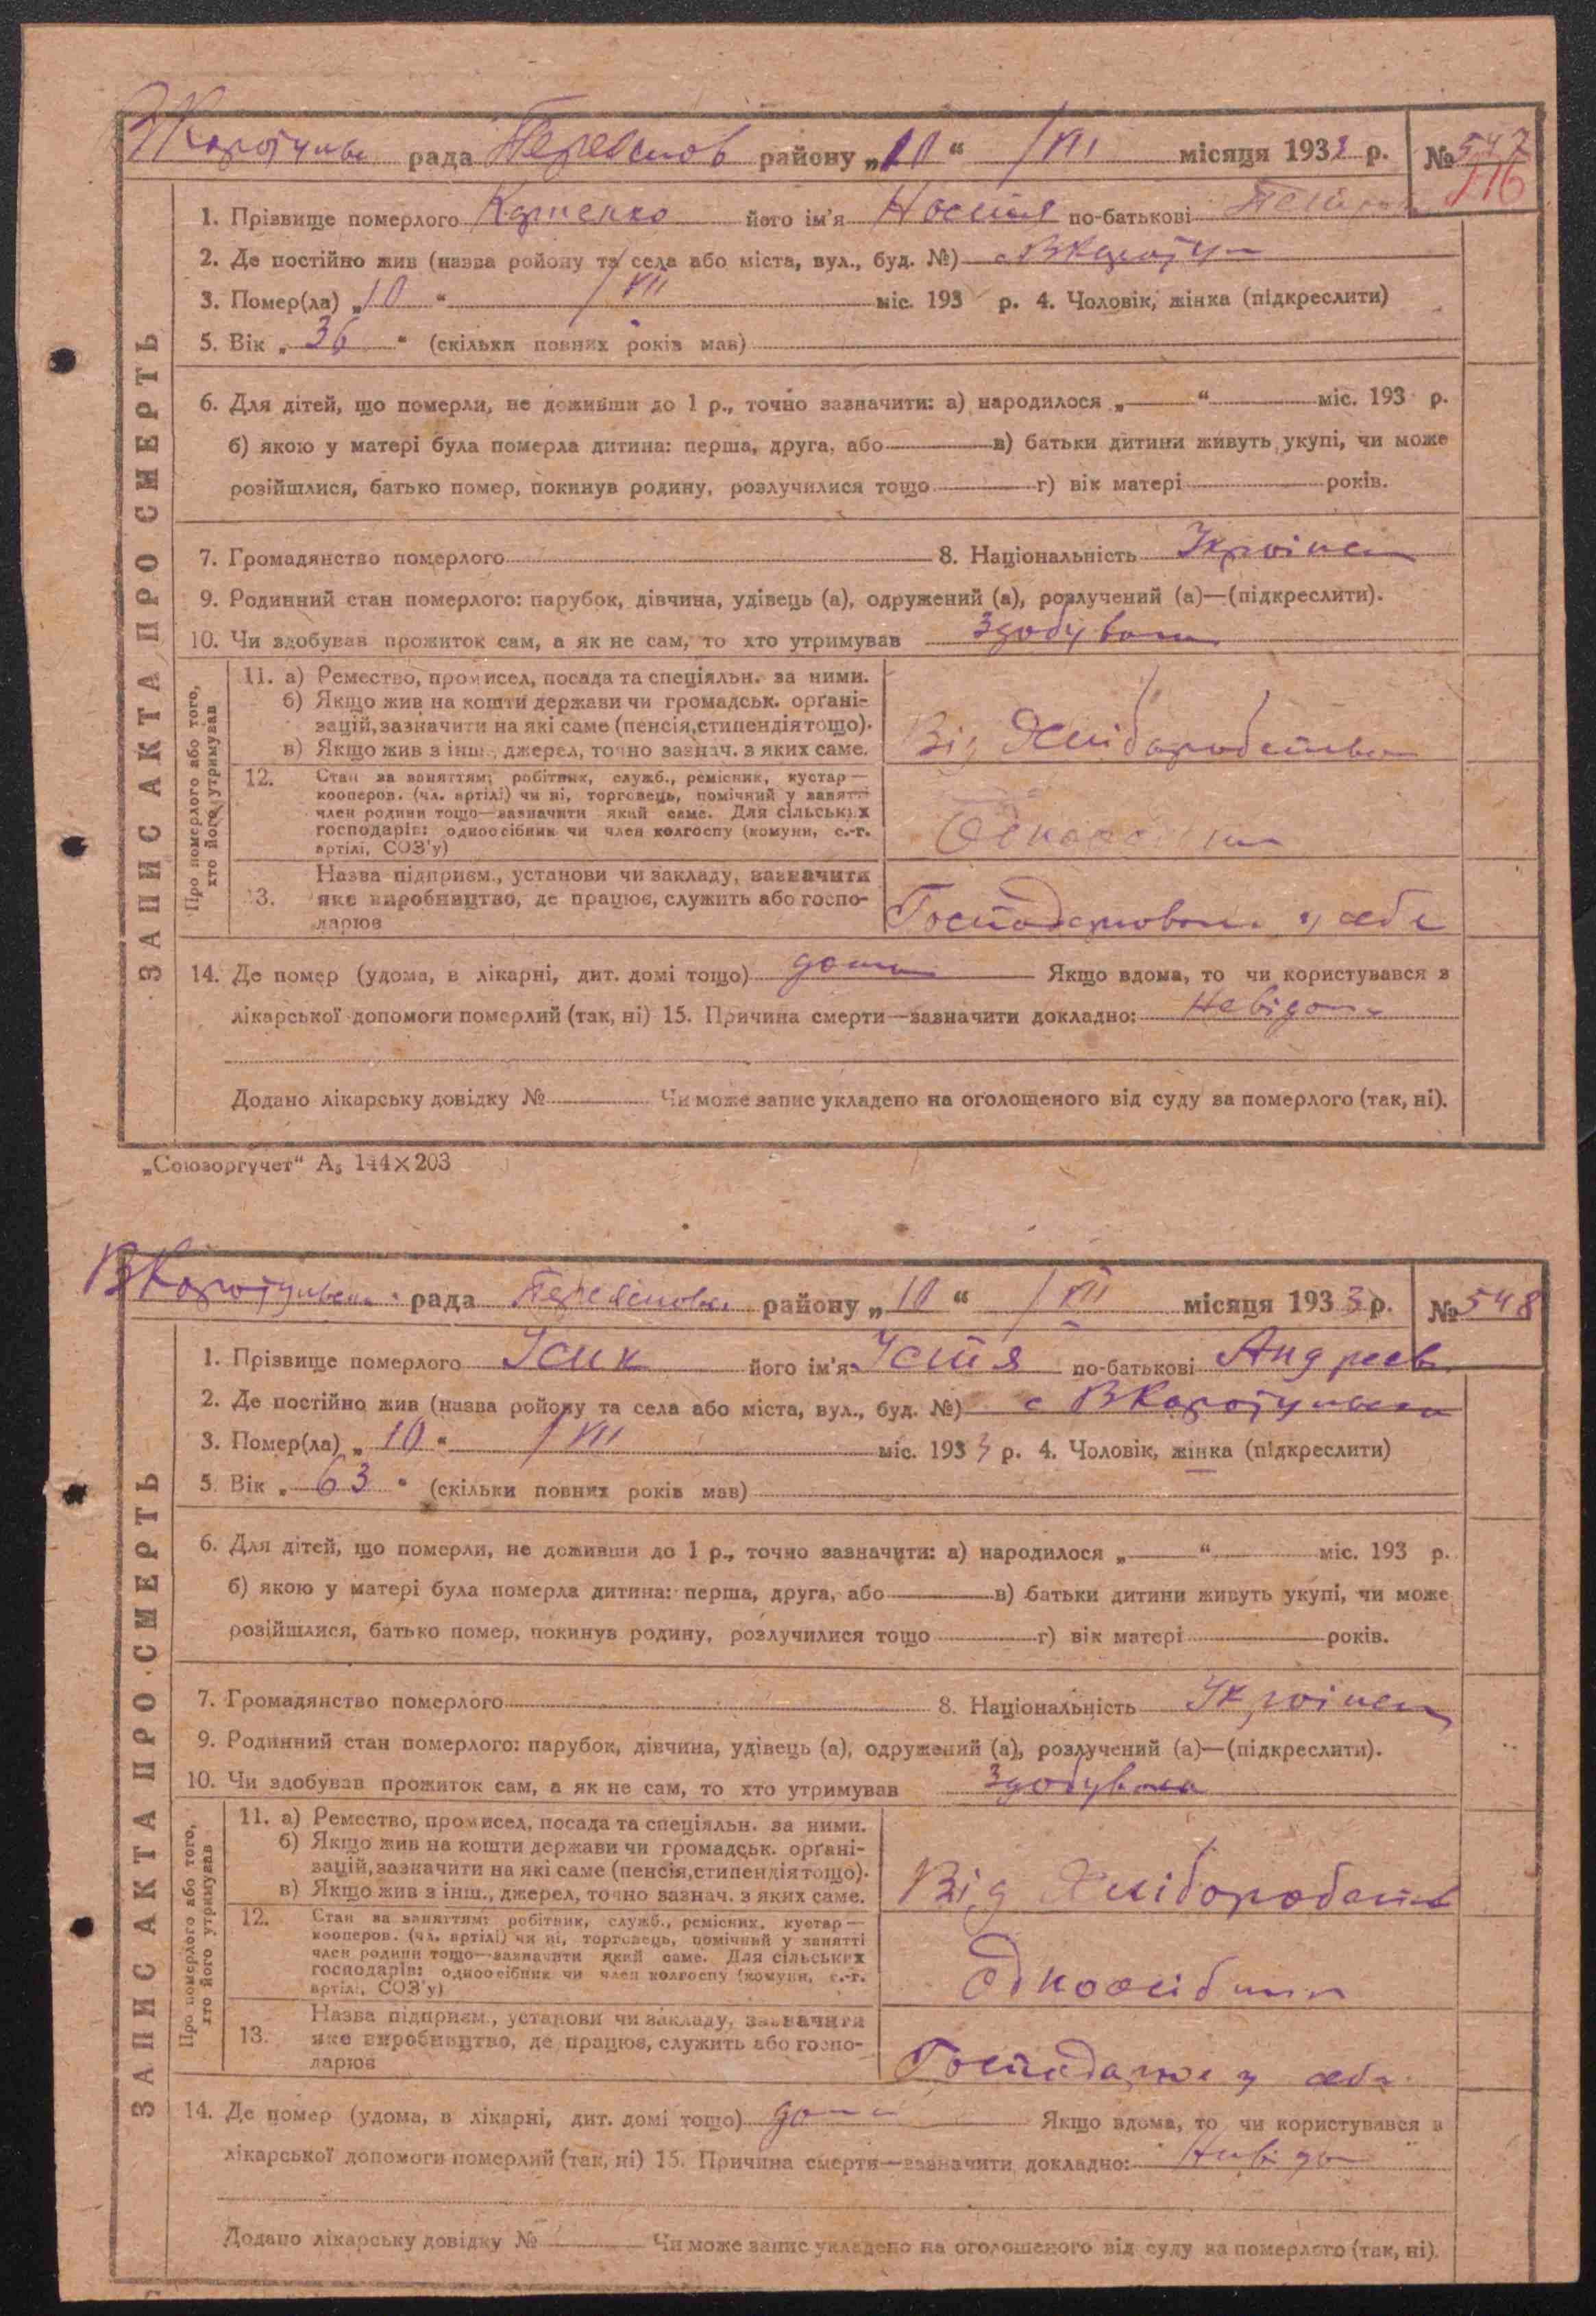 рада району „10“ /VII місяця 193 р. № 547
116
1. Прізвище померлого його ім'я Настя по-батькові
2. Де постійно жив (назва району та села або міста, вул., буд. №) с
3. Помер(ла) „10“ /VII міс. 193 р. 4. Чоловік, жінка (підкреслити)
5. Вік „36“ (скільки повних років мав)
6. Для дітей, що померли, не доживши до 1 р., точно зазначити: а) народилося „ “ міс. 193 р.
б) якою у матері була померла дитина: перша, друга, або в) батьки дитини живуть укупі, чи може
розійшлися, батько помер, покинув родину, розлучилися тощо г) вік матері років.
7. Громадянство померлого 8. Національність
9. Родинний стан померлого: парубок, дівчина, удівець (а), одружений (а), розлучений (а)—(підкреслити).
10. Чи здобував прожиток сам, а як не сам, то хто утримував
11. а) Ремество, промисел, посада та спеціяльн. за ними.
б) Якщо жив на кошти держави чи громадськ. орґані-
зацій, зазначити на які саме (пенсія, стипендія тощо).
в) Якщо жив з інш., джерел, точно зазнач. з яких саме.
Від Хліборобства
12. Стан за заняттям: робітник, служб., ремісник, кустар—
кооперов. (чл. артілі) чи ні, торговець, помічний у занятті
член родини тощо—зазначити який саме. Для сільських
господарів: одноосібник чи член колгоспу (комуни, с.-г.
артілі, СОЗ'у)
13. Назва підприєм., установи чи закладу, зазначити
яке виробництво, де працює, служить або госпо-
дарює
у себе
Про померлого або того,
хто його утримував
14. Де помер (удома, в лікарні, дит. домі тощо) дома Якщо вдома, то чи користувався з
лікарської допомоги померлий (так, ні) 15. Причина смерти—зазначити докладно: Невідома
Додано лікарську довідку № Чи може запис укладено на оголошеного від суду за померлого (так, ні).
ЗАПИС АКТА ПРО СМЕРТЬ
„Союзоргучет“ А₅ 144×203
рада району „10“ /VII місяця 1933 р. № 548
1. Прізвище померлого Усик його ім'я Устя по-батькові Андреев
2. Де постійно жив (назва району та села або міста, вул., буд. №) с
3. Помер(ла) „10“ /VII міс. 1933 р. 4. Чоловік, жінка (підкреслити)
5. Вік „63“ (скільки повних років мав)
6. Для дітей, що померли, не доживши до 1 р., точно зазначити: а) народилося „ “ міс. 193 р.
б) якою у матері була померла дитина: перша, друга, або в) батьки дитини живуть укупі, чи може
розійшлися, батько помер, покинув родину, розлучилися тощо г) вік матері років.
7. Громадянство померлого 8. Національність
9. Родинний стан померлого: парубок, дівчина, удівець (а), одружений (а), розлучений (а)—(підкреслити).
10. Чи здобував прожиток сам, а як не сам, то хто утримував Здобувала
11. а) Ремество, промисел, посада та спеціяльн. за ними.
б) Якщо жив на кошти держави чи громадськ. орґані-
зацій, зазначити на які саме (пенсія, стипендія тощо).
в) Якщо жив з інш., джерел, точно зазнач. з яких саме.
Від Хліборобств
12. Стан за заняттям: робітник, служб., ремісник, кустар—
кооперов. (чл. артілі) чи ні, торговець, помічний у занятті
член родини тощо—зазначити який саме. Для сільських
господарів: одноосібник чи член колгоспу (комуни, с.-г.
артілі, СОЗ'у)
Одноосібник
13. Назва підприєм., установи чи закладу, зазначити
яке виробництво, де працює, служить або госпо-
дарює
Господарює у себе
Про померлого або того,
хто його утримував
14. Де помер (удома, в лікарні, дит. домі тощо) дома Якщо вдома, то чи користувався в
лікарської допомоги померлий (так, ні) 15. Причина смерти—зазначити докладно:
Додано лікарську довідку № Чи може запис укладено на оголошеного від суду за померлого (так, ні).
ЗАПИС АКТА ПРО СМЕРТЬ